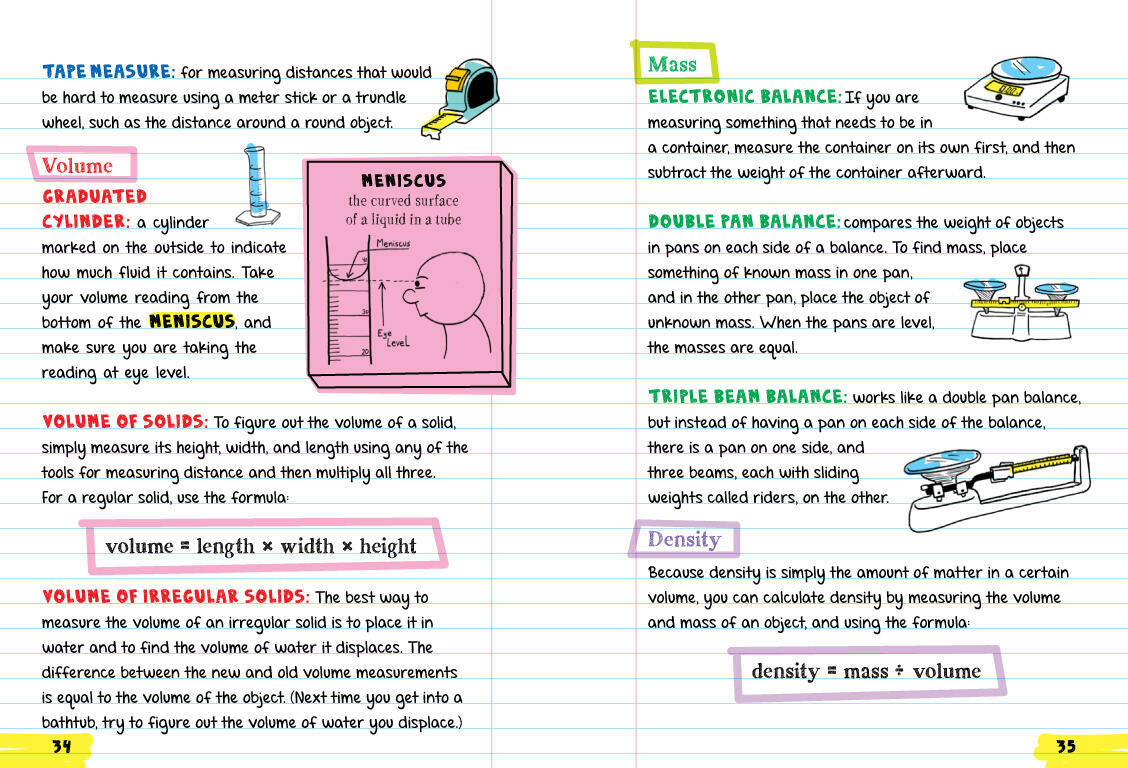 TAPE MEASURE: for measuring distances that would
be hard to measure using a meter stick or a trundle
wheel, such as the distance around a round object.
Volume
GRADUATED
CYLINDER: a cylinder
marked on the outside to indicate
how much fluid it contains. Take
your volume reading from the
bottom of the MENISCUS, and
make sure you are taking the
reading at eye level.
MENISCUS
the curved surface
of a liquid in a tube
Meniscus
40
30
20
Eye
Level
VOLUME OF SOLIDS: To figure out the volume of a solid,
simply measure its height, width, and length using any of the
tools for measuring distance and then multiply all three.
For a regular solid, use the formula:
volume = length × width × height
VOLUME OF IRREGULAR SOLIDS: The best way to
measure the volume of an irregular solid is to place it in
water and to find the volume of water it displaces. The
difference between the new and old volume measurements
is equal to the volume of the object. (Next time you get into a
bathtub, try to figure out the volume of water you displace.)
34
Mass
ELECTRONIC BALANCE: If you are
measuring something that needs to be in
a container, measure the container on its own first, and then
subtract the weight of the container afterward.
DOUBLE PAN BALANCE: compares the weight of objects
in pans on each side of a balance. To find mass, place
something of known mass in one pan,
and in the other pan, place the object of
unknown mass. When the pans are level,
the masses are equal.
TRIPLE BEAM BALANCE: works like a double pan balance,
but instead of having a pan on each side of the balance,
there is a pan on one side, and
three beams, each with sliding
weights called riders, on the other.
Density
Because density is simply the amount of matter in a certain
volume, you can calculate density by measuring the volume
and mass of an object, and using the formula:
density = mass ÷ volume
35